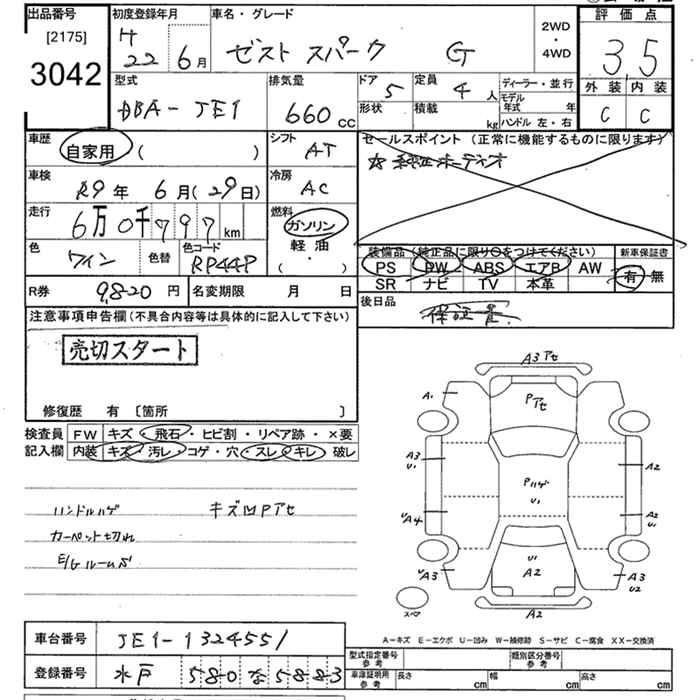 出品番号
[2175]
3042
初度登録年月
H 22年 6月
車名・グレード
ゼスト スパーク G
2WD
・
4WD
評価点
3 5
外装 内装
C C
型式
DBA-JE1
排気量
660 cc
ドア 5
形状
定員 4人
積載 kg
ディーラー・並行
モデル年式 年
ハンドル 左・右
車歴
自家用 ( )
シフト
AT
セールスポイント (正常に機能するものに限ります)
☆ 純正オーディオ
車検
R9年 6月(29日)
冷房
AC
走行
6万0千797km
燃料
ガソリン
軽油
( ・ )
色
ワイン
色替
色コード
RP44P
装備品 (純正品に限り○をつけてください)
新車保証書
PS PW ABS エアB AW
有・無
SR ナビ TV 本革
R券 9,820円
名変期限 月 日
後日品
保証書
注意事項申告欄 (不具合内容等は具体的に記入して下さい)
売切スタート
修復歴 有 〔箇所 〕
検査員 FW キズ・飛石・ヒビ割・リペア跡・×要
記入欄 内装 キズ・汚レ・コゲ・穴・スレ・キレ・破レ
ハンドルハゲ キズ凹Pアセ
カーペット切れ
E/Gルーム
A3 アセ
A1
Pアセ
A3
U1
A2
Pハゲ
U1
U
A4
A2
U1
U1
A2
U
A3
A3
U2
スペア
A2
A-キズ E-エクボ U-凹み W-補修跡 S-サビ C-腐食 XX-交換済
車台番号 JE1-1324551
型式指定番号
参考
類別区分番号
参考
登録番号 水戸 580 な 5883
車庫証明用
参考
長さ cm
幅 cm
高さ cm